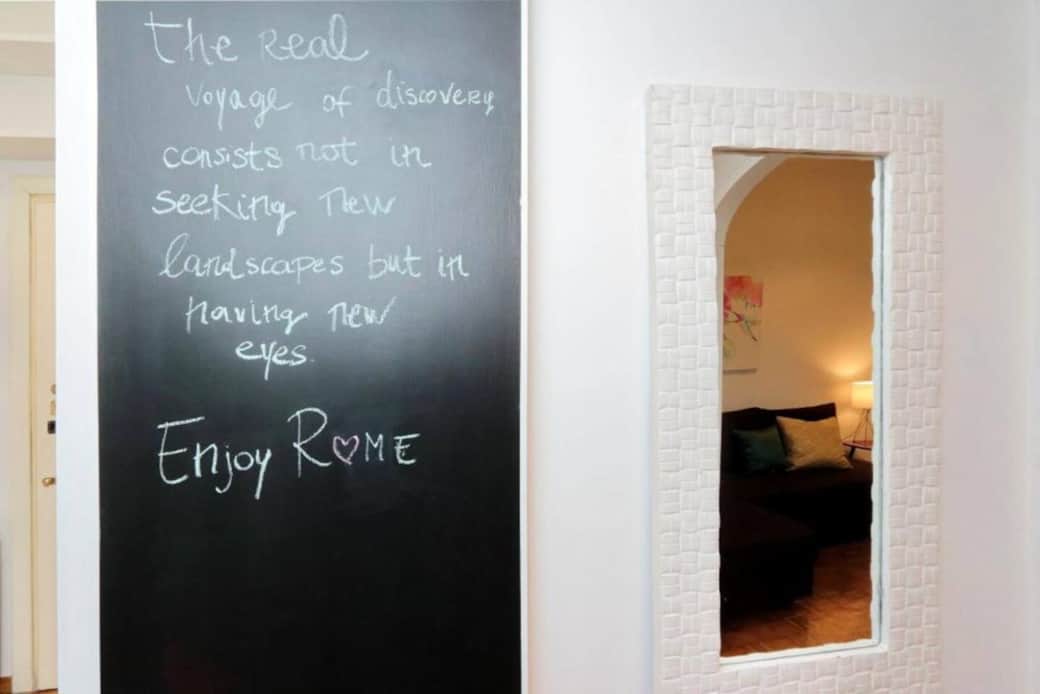 The Real
voyage of discovery
consists not in
seeking new
landscapes but in
having new
eyes.
Enjoy R♡ME